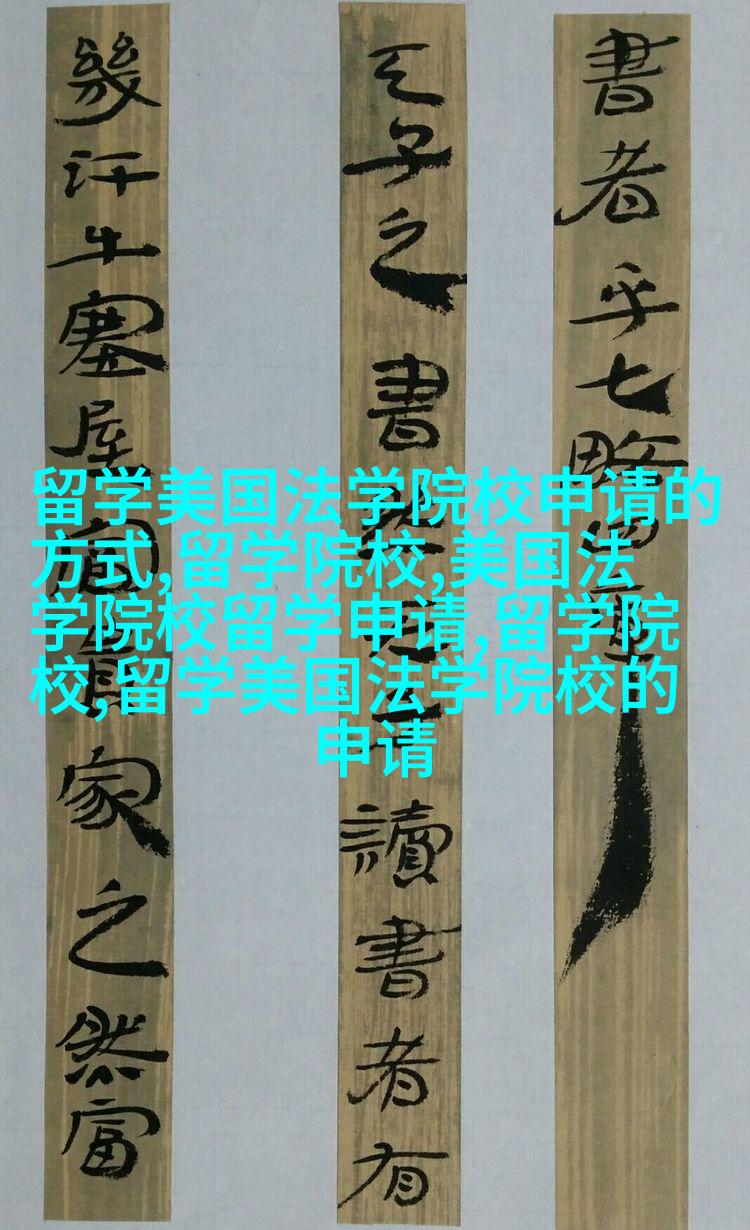 書者乎七略四庫
天子之書然天子讀書者有
幾汗牛塞屋富貴家之然富
留学美国法学院校申请的
方式,留学院校,美国法
学院校留学申请,留学院
校,留学美国法学院校的
申请